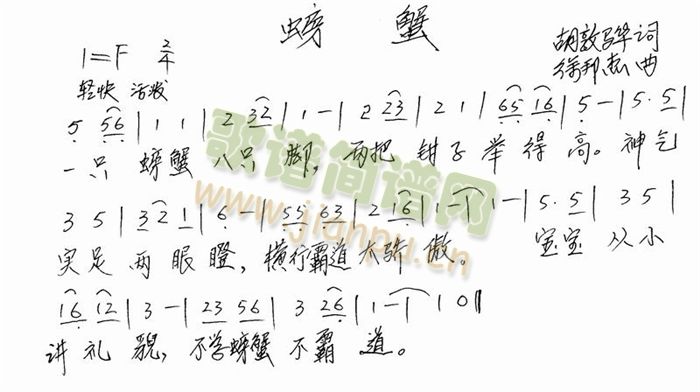 螃 蟹
1=F 2/4
胡敦骅词
轻快 活泼
徐邦杰曲
5 56 | 1 1 | 2 32 | 1 - | 2 23 | 2 1 | 65 16 | 5 - | 5. 5 |
一只 螃蟹 八只 脚, 两把 钳子 举 得 高。 神气
3 5 | 32 1 | 6 - | 55 63 | 2 16 | 1 - | 1 - | 5. 5 | 3 5 |
实足 两 眼 瞪, 横行霸道 太骄 傲。 宝宝 从小
16 12 | 3 - | 23 56 | 3 26 | 1 - | 1 0 ‖
讲 礼 貌, 不学螃蟹 不霸 道。
歌谱简谱网
www.jianpu.cn